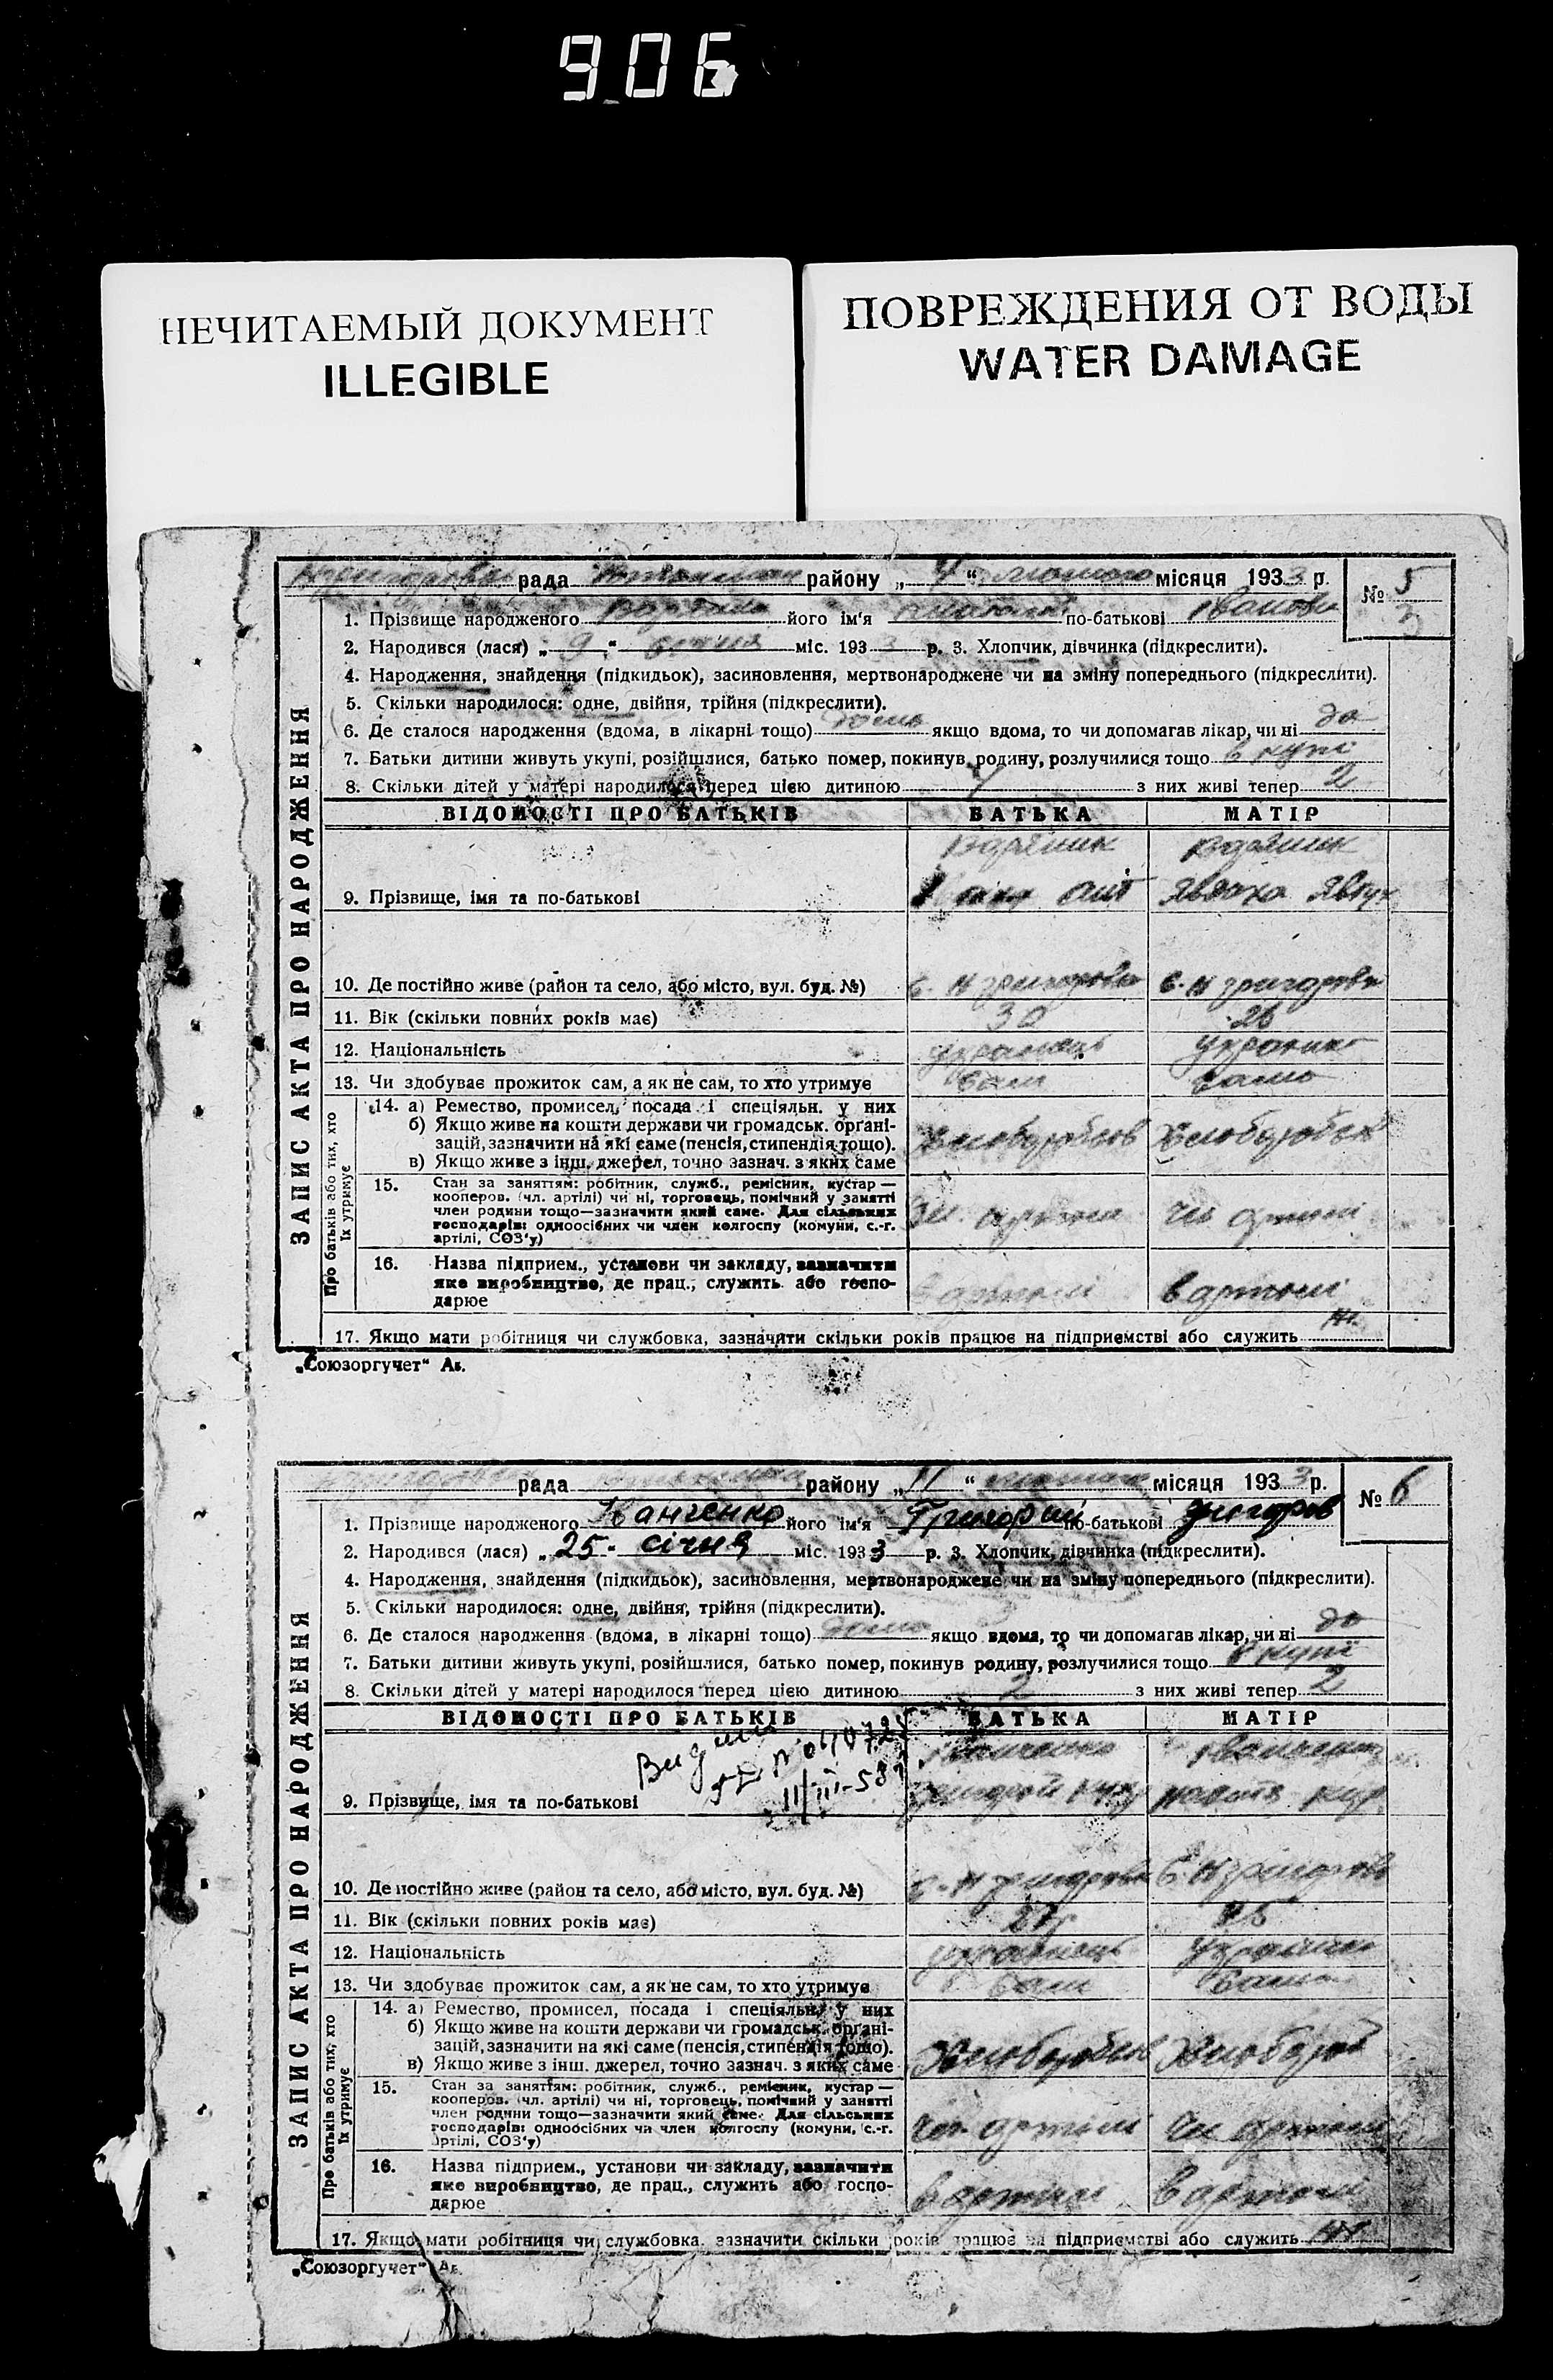 906
НЕЧИТАЕМЫЙ ДОКУМЕНТ
ILLEGIBLE
ПОВРЕЖДЕНИЯ ОТ ВОДЫ
WATER DAMAGE
рада району „ “ лютого місяця 193 3 р.
№ 5
3
1. Прізвище народженого його ім'я по-батькові
2. Народився (лася) „ 9 “ січня міс. 193 3 р. 3. Хлопчик, дівчинка (підкреслити).
4. Народження, знайдення (підкидьок), засиновлення, мертвонароджене чи на зміну попереднього (підкреслити).
5. Скільки народилося: одне, двійня, трійня (підкреслити).
6. Де сталося народження (вдома, в лікарні тощо) дома якщо вдома, то чи допомагав лікар, чи ні до
7. Батьки дитини живуть укупі, розійшлися, батько помер, покинув родину, розлучилися тощо в купі
8. Скільки дітей у матері народилося перед цією дитиною з них живі тепер 2
ЗАПИС АКТА ПРО НАРОДЖЕННЯ
ВІДОМОСТІ ПРО БАТЬКІВ БАТЬКА МАТІР
9. Прізвище, імя та по-батькові
10. Де постійно живе (район та село, або місто, вул. буд. №) с. Н григоровка с. Н григоровка
11. Вік (скільки повних років має) 30 26
12. Національність українець українка
13. Чи здобуває прожиток сам, а як не сам, то хто утримує сам сама
Про батьків або тих, хто їх утримує
14. а) Ремество, промисел, посада і спеціяльн. у них
б) Якщо живе на кошти держави чи громадськ. органі-
зацій, зазначити на які саме (пенсія, стипендія тощо).
в) Якщо живе з інш. джерел, точно зазнач. з яких саме
Хлебороб
15. Стан за заняттям: робітник, служб., ремісник, кустар —
кооперов. (чл. артілі) чи ні, торговець, помічний у занятті
член родини тощо—зазначити який саме. Для сільських
господарів: одноосібних чи член колгоспу (комуни, с.-г.
артілі, СОЗ'у)
чл артілі
16. Назва підприєм., установи чи закладу, зазначити
яке виробництво, де прац., служить або госпо-
дарює
в артілі в артілі
17. Якщо мати робітниця чи службовка, зазначити скільки років працює на підприємстві або служить
„Союзоргучет“ Ав.
рада району „ 11 “ лютого місяця 193 3 р.
№ 6
1. Прізвище народженого Іванченко його ім'я Григорій по-батькові Григоров
2. Народився (лася) „ 25 - січня міс. 193 3 р. 3. Хлопчик, дівчинка (підкреслити).
4. Народження, знайдення (підкидьок), засиновлення, мертвонароджене чи на зміну попереднього (підкреслити).
5. Скільки народилося: одне, двійня, трійня (підкреслити).
6. Де сталося народження (вдома, в лікарні тощо) дома якщо вдома, то чи допомагав лікар, чи ні до
7. Батьки дитини живуть укупі, розійшлися, батько помер, покинув родину, розлучилися тощо в купі
8. Скільки дітей у матері народилося перед цією дитиною 2 з них живі тепер 2
ЗАПИС АКТА ПРО НАРОДЖЕННЯ
ВІДОМОСТІ ПРО БАТЬКІВ БАТЬКА МАТІР
Іванченко Іванченко
11/III-58
9. Прізвище, імя та по-батькові Григорій
10. Де постійно живе (район та село, або місто, вул. буд. №) с. Н григоровка с. Н григоровка
11. Вік (скільки повних років має)
12. Національність українець українка
13. Чи здобуває прожиток сам, а як не сам, то хто утримує сам сама
Про батьків або тих, хто їх утримує
14. а) Ремество, промисел, посада і спеціяльн. у них
б) Якщо живе на кошти держави чи громадськ. органі-
зацій, зазначити на які саме (пенсія, стипендія тощо).
в) Якщо живе з інш. джерел, точно зазнач. з яких саме
15. Стан за заняттям: робітник, служб., ремісник, кустар —
кооперов. (чл. артілі) чи ні, торговець, помічний у занятті
член родини тощо—зазначити який саме. Для сільських
господарів: одноосібних чи член колгоспу (комуни, с.-г.
артілі, СОЗ'у)
чл. артілі чл артілі
16. Назва підприєм., установи чи закладу, зазначити
яке виробництво, де прац., служить або госпо-
дарює
в артілі в артілі
17. Якщо мати робітниця чи службовка, зазначити скільки років працює на підприємстві або служить
„Союзоргучет“ Ав.